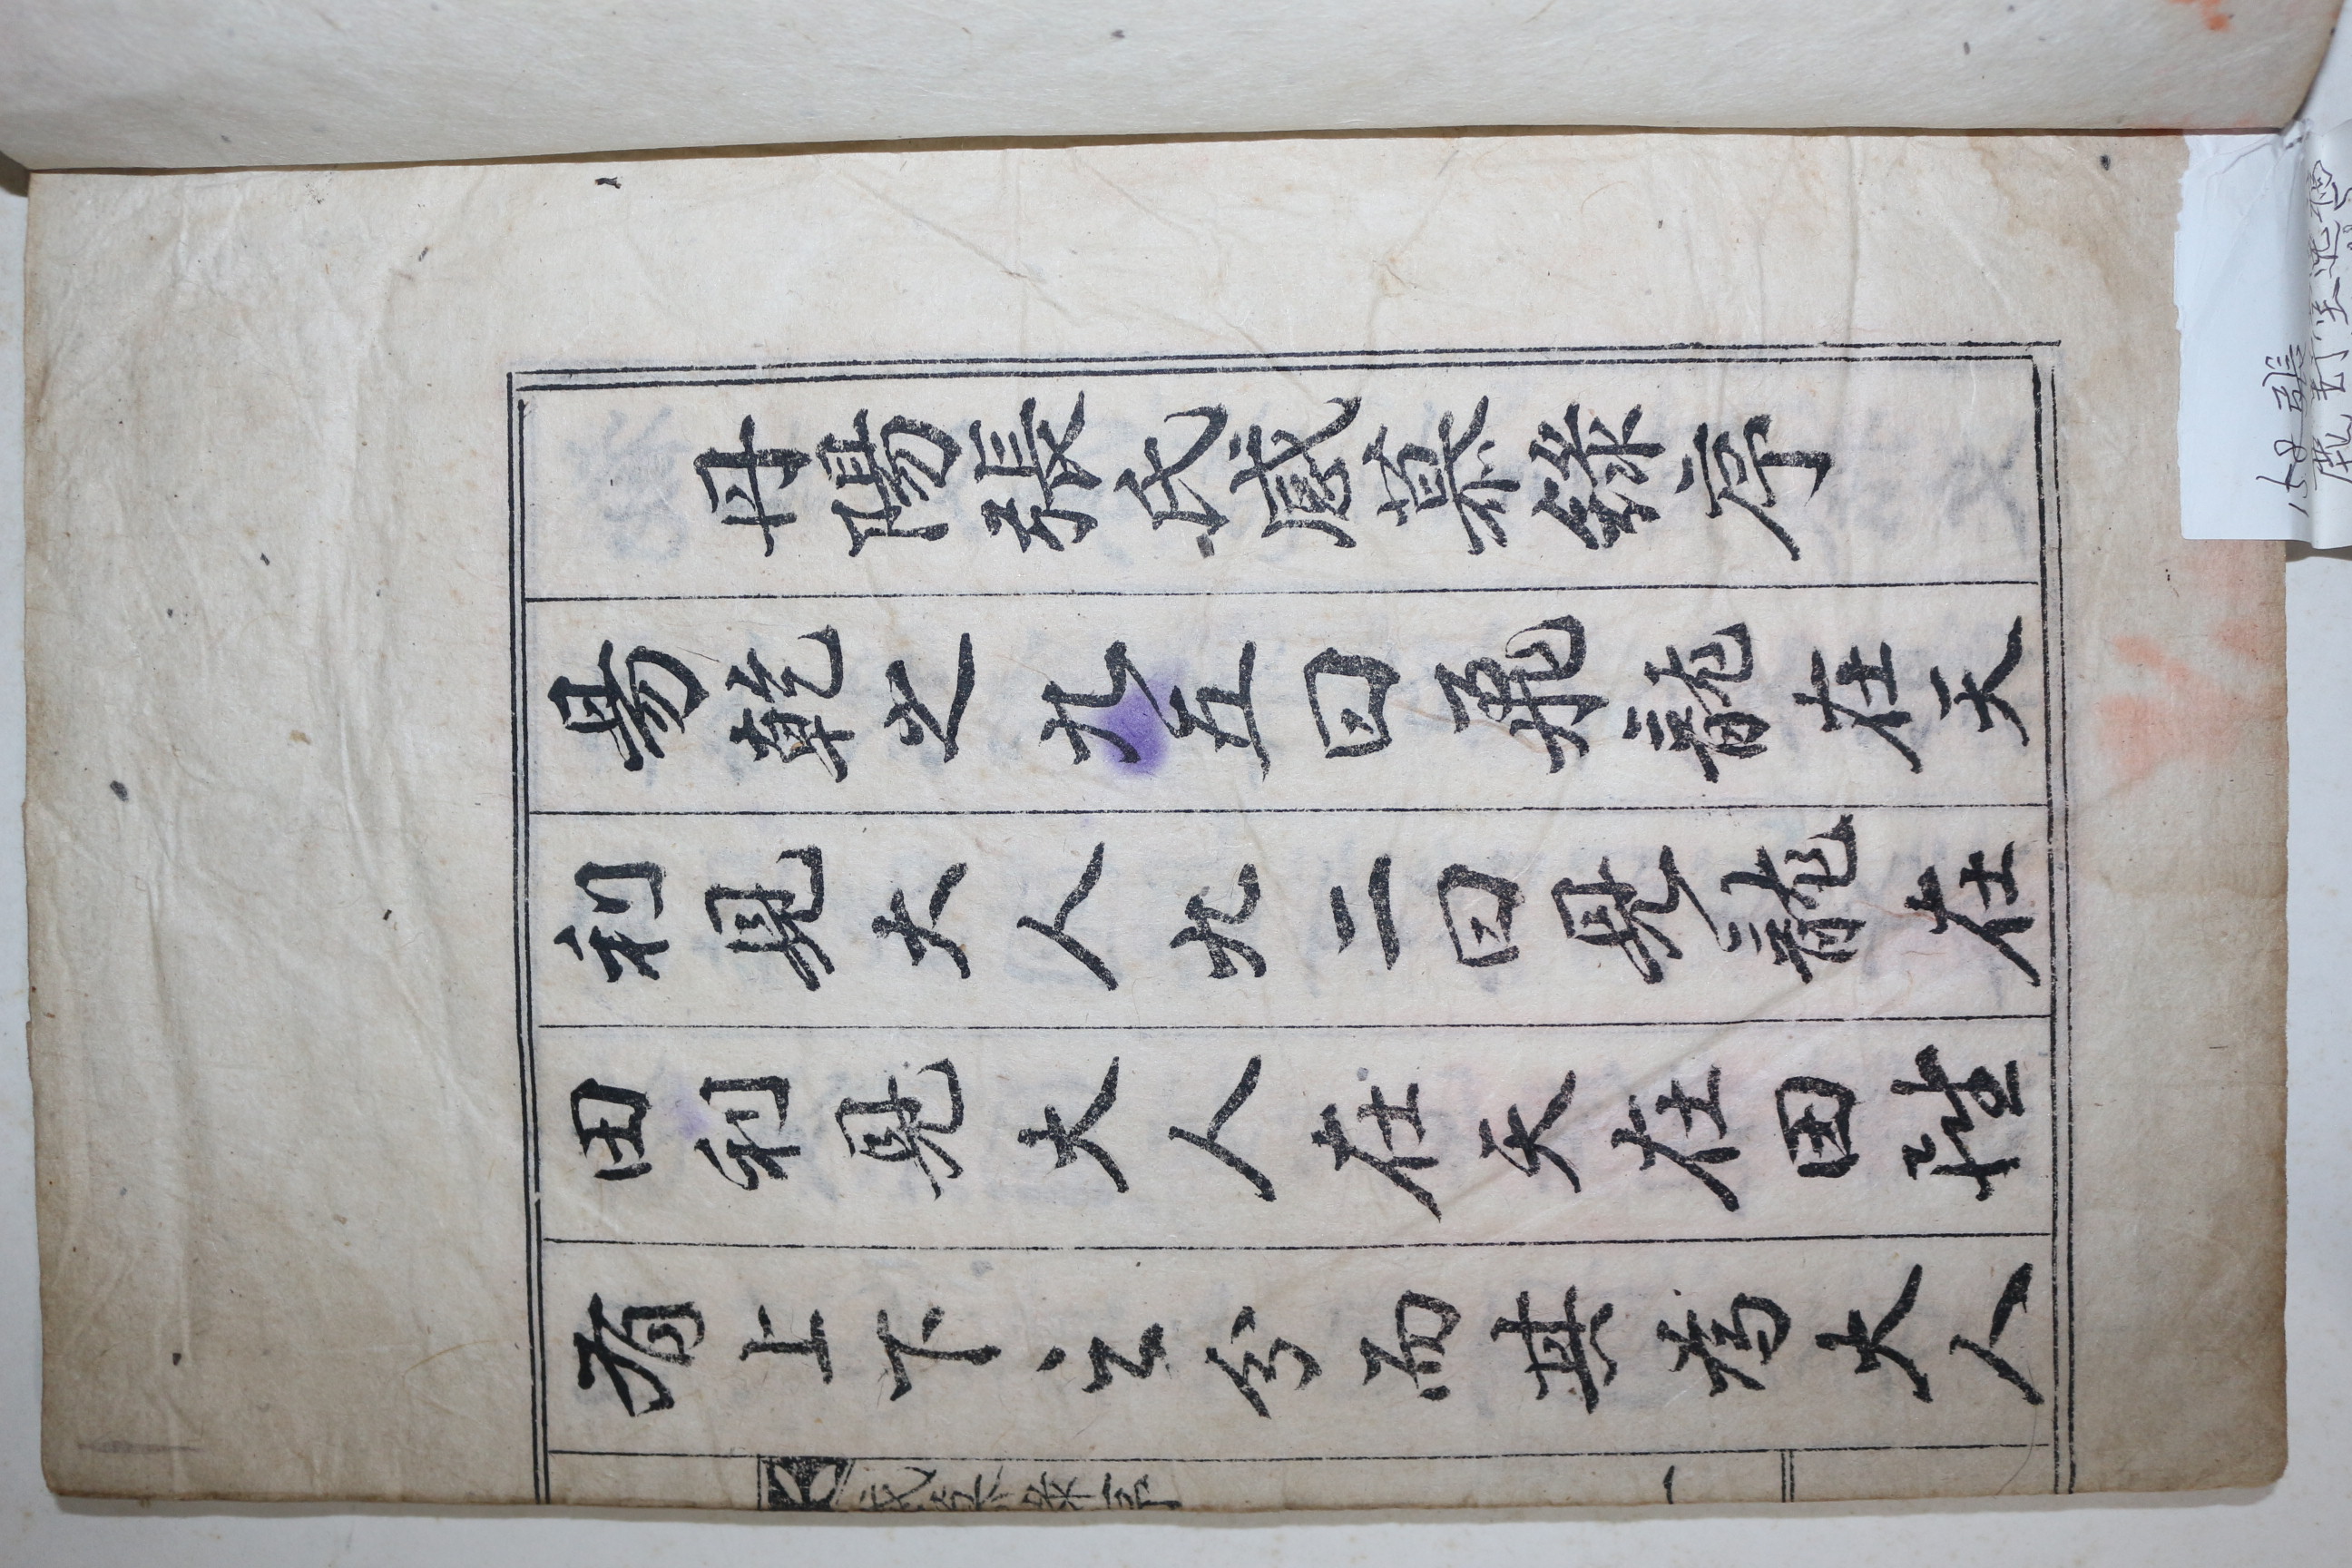 丹陽張氏感慕錄序
易乾之九五曰飛龍在天
利見大人九二曰見龍在
田利見大人在天在田雖
有上下之分而其為大人
一
158 張